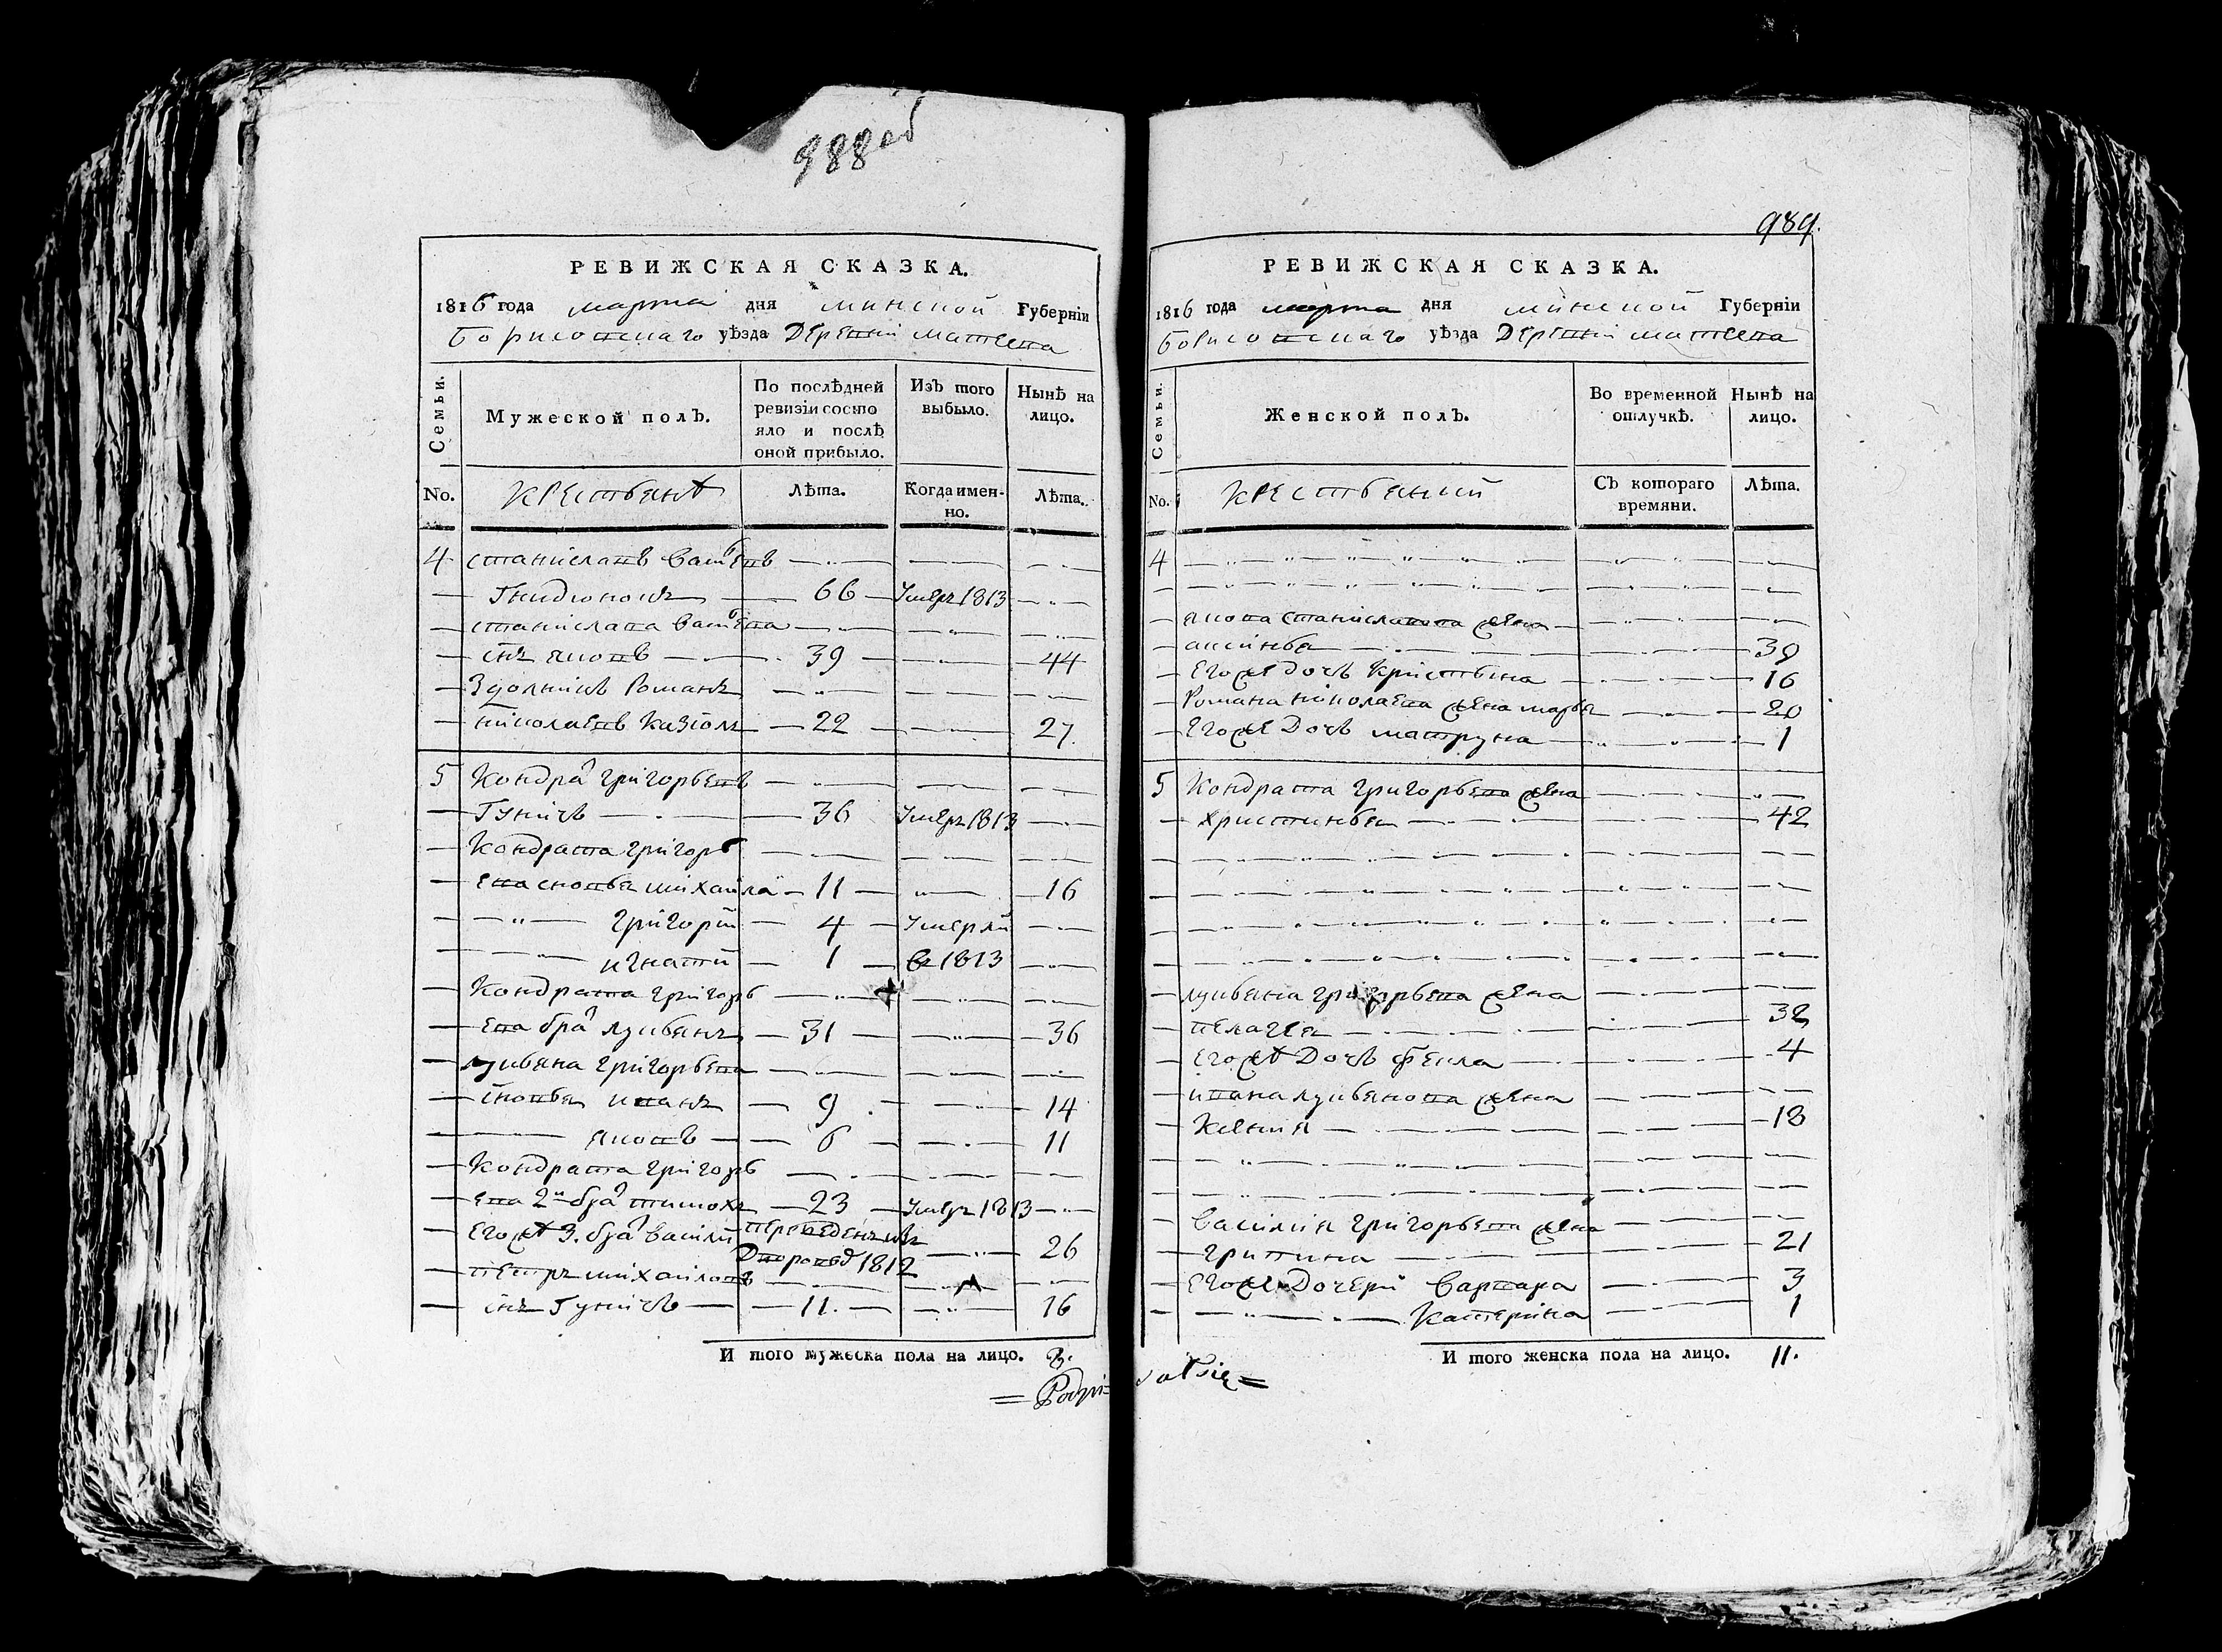 988 об
РЕВИЖСКАЯ СКАЗКА.
1816 года марта дня минской Губерніи
Борисовскаго уѣзда Деревни Матвева
Семьи.
Мужеской полъ.
По послѣдней
ревизіи состо
яло и послѣ
оной прибыло.
Изъ того
выбыло.
Нынѣ на
лицо.
No. крестьянѣ Лѣта. Когда имен-
но. Лѣта.
4 станиславъ
66 Умеръ 1813
станислава
снъ яковъ 39 44
Романъ
николаевъ 22 27.
5 Кондра т григорьевъ
Гуничъ 36 Умеръ 1813
Кондрата григорь
ева сновья михаила 11 16
григорий 4 Умерли
игнатий 1 въ 1813
Кондрата григорь
ева бра т лукьянъ 31 36
лукьяна григорьева
сновья иванъ 9 14
яковъ 6 11
Кондрата григорь
ева 2й бра т тимохъ 23 Умеръ 1813
егожъ 3. бра т василий переведенъ изъ
1812 26
петръ михайловъ
снъ Гуничъ 11. 16
И того мужеска пола на лицо. 8.
989.
РЕВИЖСКАЯ СКАЗКА.
1816 года марта дня минской Губерніи
Борисовскаго уѣзда Деревни матвева
Семьи.
Женской полъ.
Во временной
отлучкѣ.
Нынѣ на
лицо.
No. крестьяний Съ котораго
времяни. Лѣта.
4
якова станиславова жена
аксинья 39
Егоже дочь кристьина 16
Романа николаева жена марья 20
Егоже Дочь матруна 1
5 Кондрата григорьева жена
христинья 42
лукьяна григорьева жена
пелагея 32
егожъ Дочь фекла 4
ивана лукьянова жена
18
василия григорьева жена
грипина 21
егоже Дочери варвара 3
Катерина 1
И того женска пола на лицо. 11.